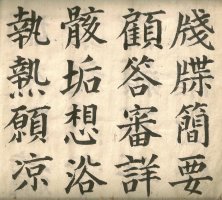 牋牒簡要
顧答審詳
骸垢想浴
執熱願凉